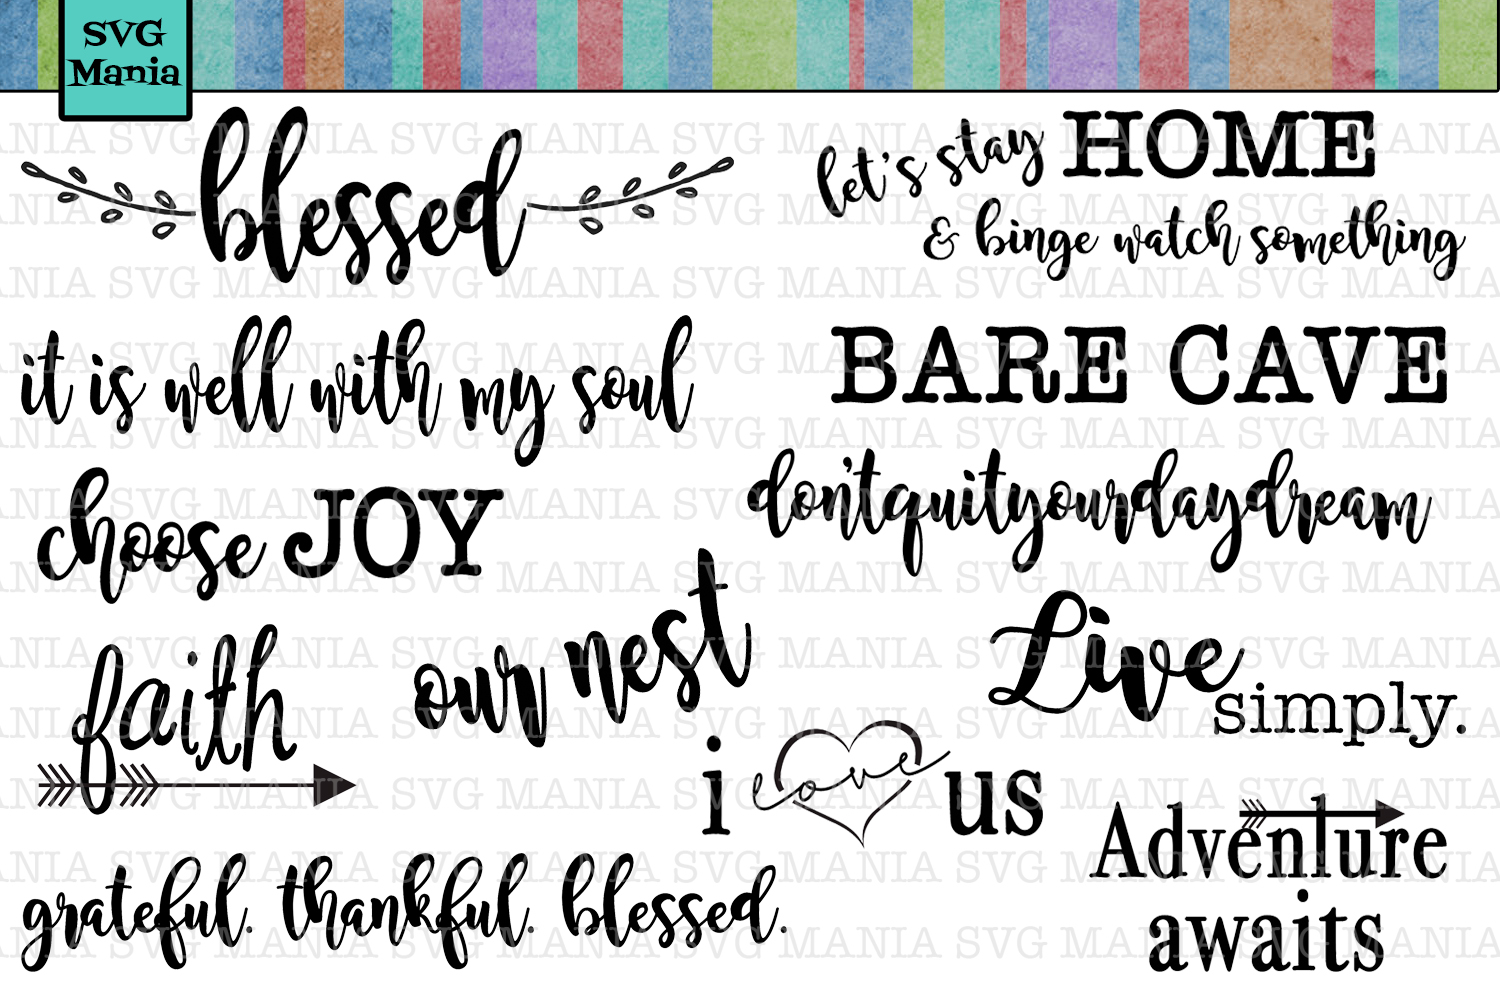 SVG
Mania
blessed
let's stay HOME
& binge watch something
it is well with my soul
BARE CAVE
choose JOY
don'tquityourdaydream
faith
our nest
Live
simply.
i love us
Adventure
awaits
grateful. thankful. blessed.
MANIA SVG MANIA SVG MANIA SVG MANIA SVG MANIA SVG MANIA